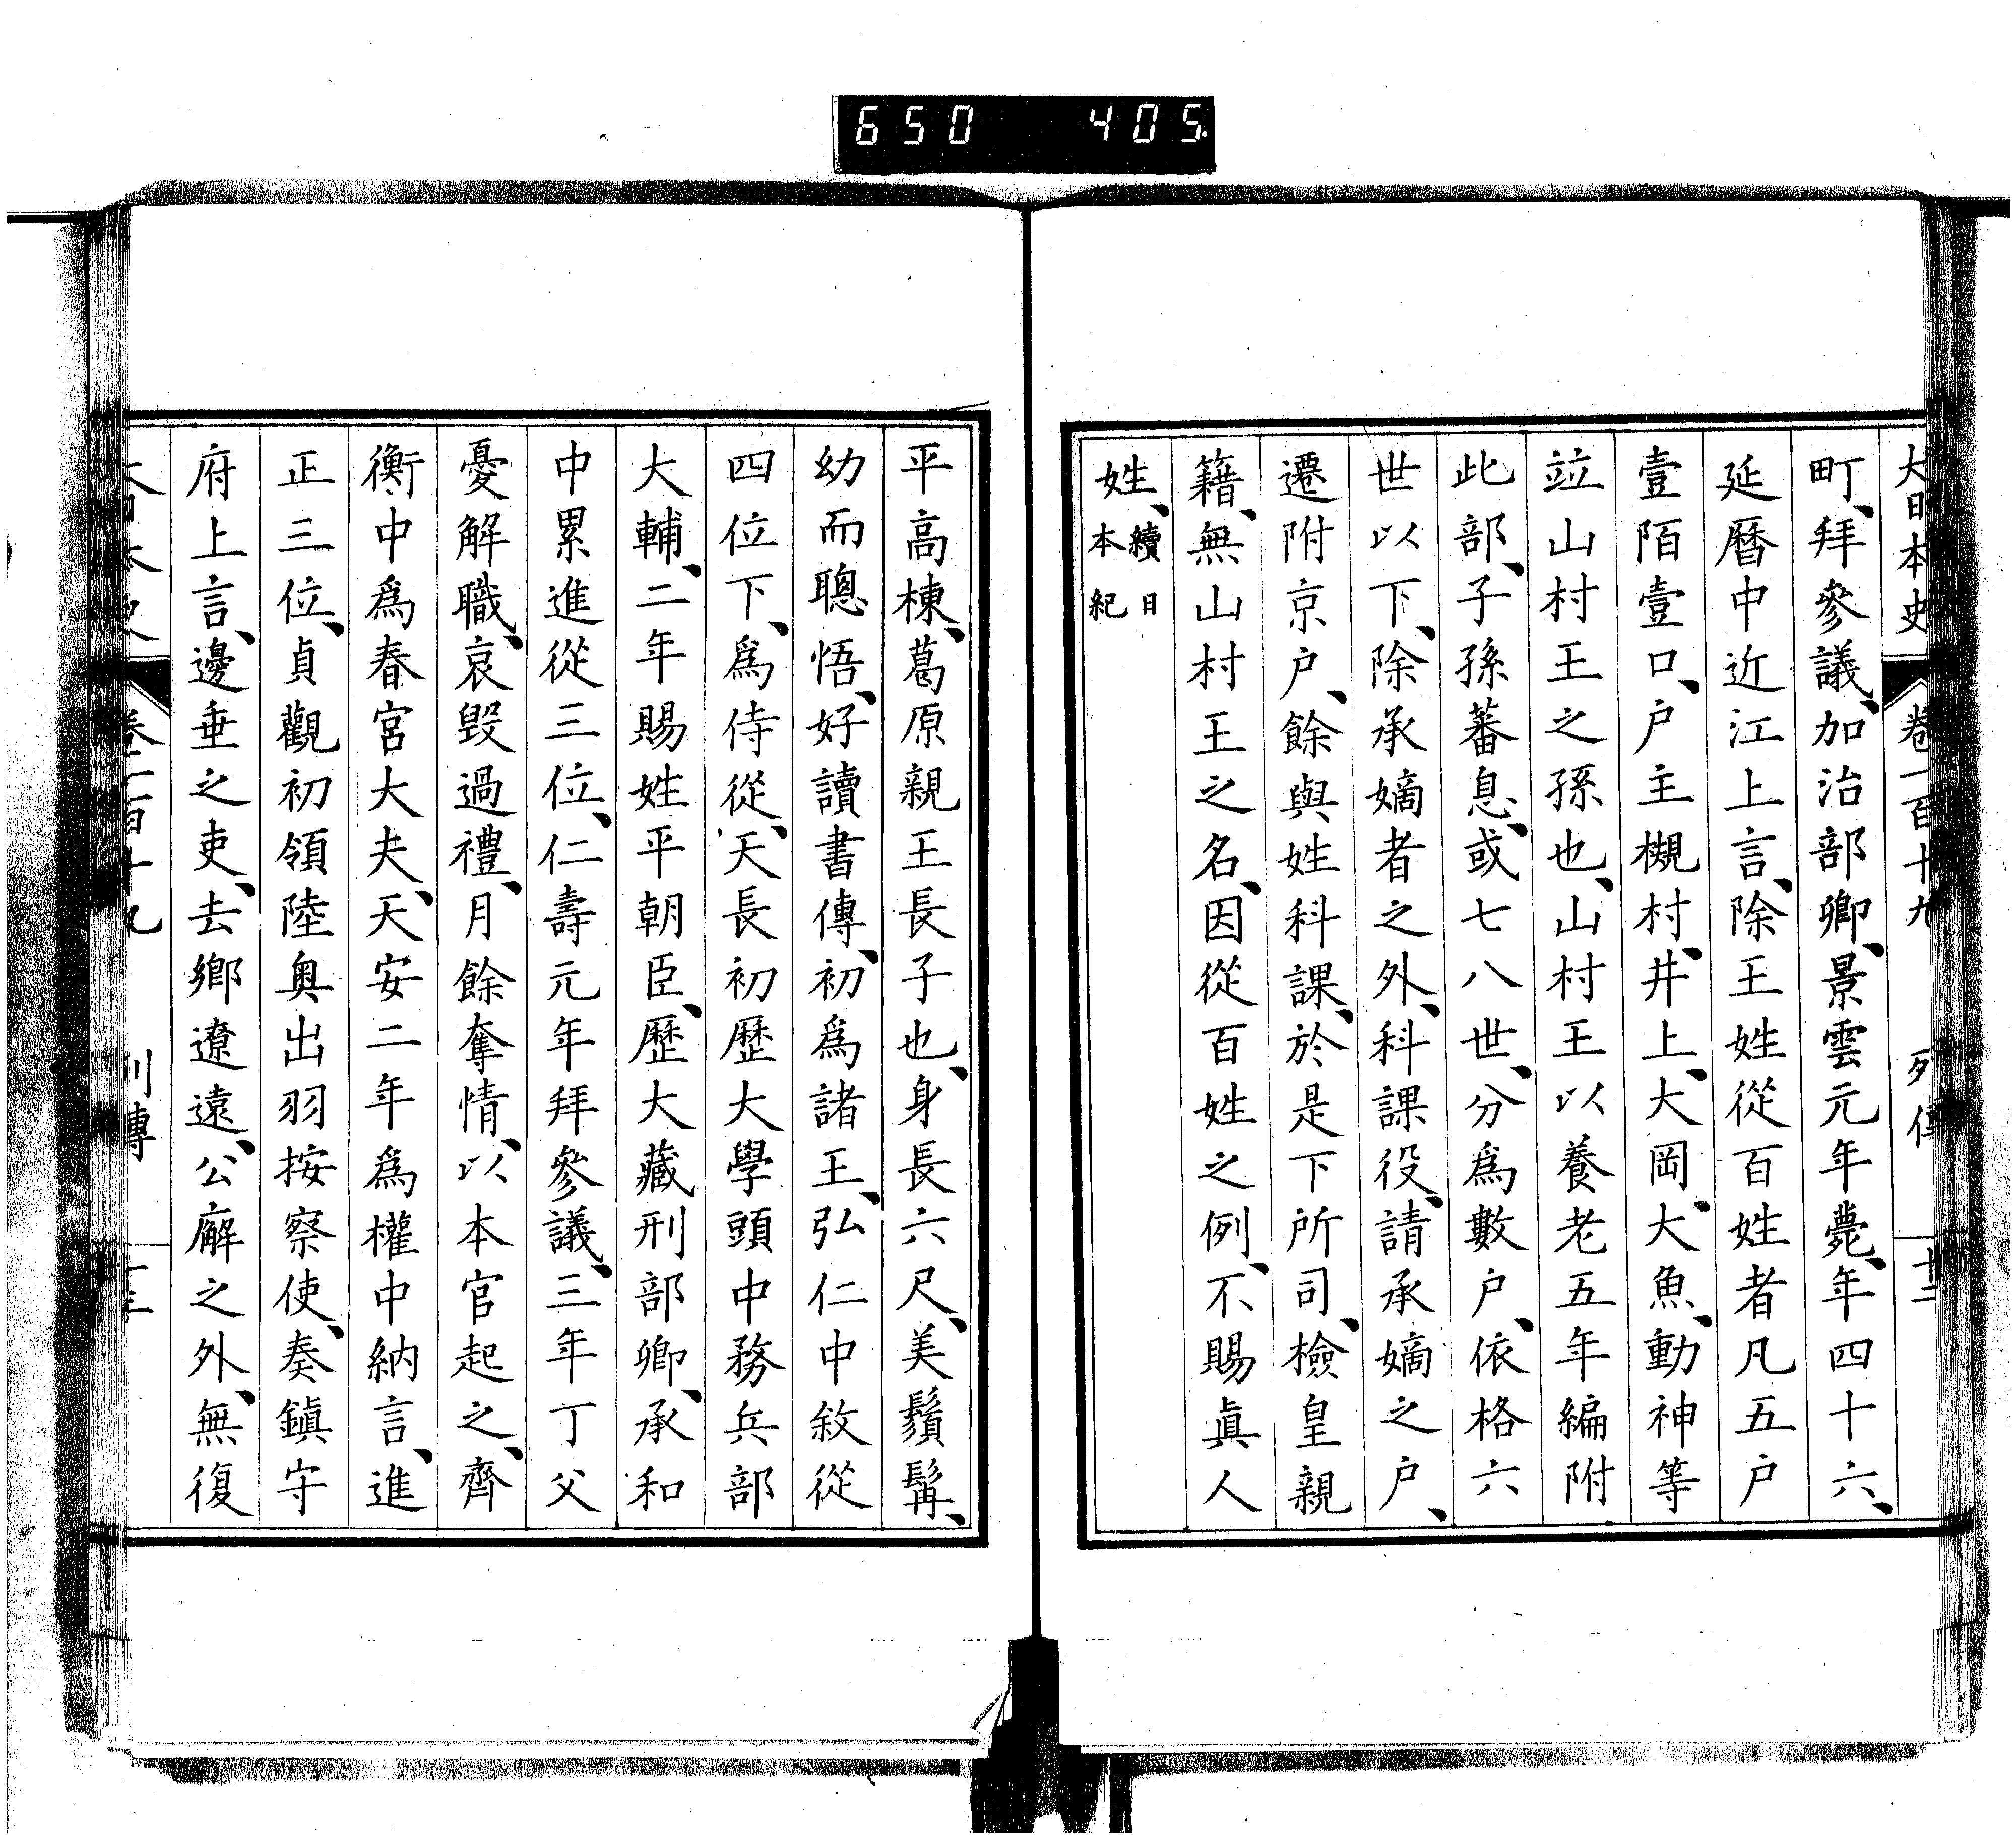 650 405
大日本史 卷一百十九 列傳 十二
町、拜參議、加治部卿、景雲元年薨、年四十六、
延曆中近江上言、除王姓從百姓者凡五戶
壹陌壹口、戶主槻村、井上、大岡、大魚、動神等
竝山村王之孫也、山村王以養老五年編附
此部、子孫蕃息、或七八世、分爲數戶、依格六
世以下、除承嫡者之外、科課役、請承嫡之戶、
遷附京戶、餘與姓科課、於是下所司、檢皇親
籍、無山村王之名、因從百姓之例、不賜眞人
姓、續日本紀
平高棟、葛原親王長子也、身長六尺、美鬚髯、
幼而聰悟、好讀書傳、初爲諸王、弘仁中敘從
四位下、爲侍從、天長初歷大學頭中務兵部
大輔、二年賜姓平朝臣、歷大藏刑部卿、承和
中累進從三位、仁壽元年拜參議、三年丁父
憂解職、哀毀過禮、月餘奪情、以本官起之、齊
衡中爲春宮大夫、天安二年爲權中納言、進
正三位、貞觀初領陸奧出羽按察使、奏鎭守
府上言、邊垂之吏、去鄉遼遠、公廨之外、無復
大日本史 卷一百十九 列傳